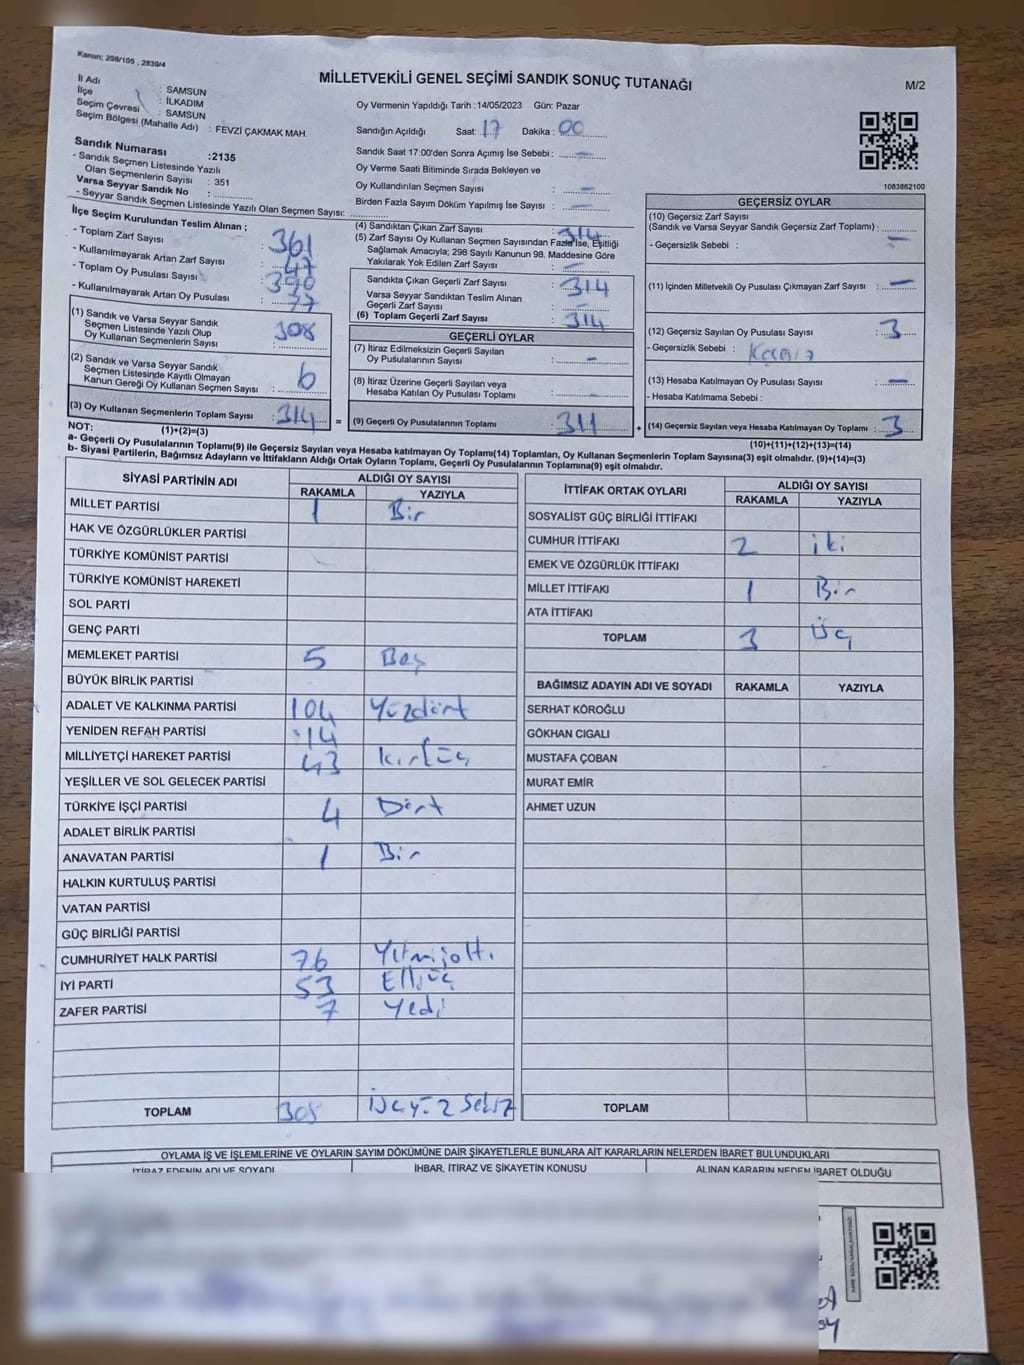 Kanun; 298/105 , 2839/4
MİLLETVEKİLİ GENEL SEÇİMİ SANDIK SONUÇ TUTANAĞI
M/2
İl Adı : SAMSUN
İlçe : İLKADIM
Seçim Çevresi : SAMSUN
Seçim Bölgesi (Mahalle Adı) : FEVZİ ÇAKMAK MAH.
Sandık Numarası :2135
- Sandık Seçmen Listesinde Yazılı
Olan Seçmenlerin Sayısı : 351
Varsa Seyyar Sandık No :
- Seyyar Sandık Seçmen Listesinde Yazılı Olan Seçmen Sayısı:
Oy Vermenin Yapıldığı Tarih :14/05/2023 Gün: Pazar
Sandığın Açıldığı Saat: 17 Dakika : 00
Sandık Saat 17:00'den Sonra Açımış İse Sebebi : –
Oy Verme Saati Bitiminde Sırada Bekleyen ve
Oy Kullandırılan Seçmen Sayısı : –
Birden Fazla Sayım Döküm Yapılmış İse Sayısı : –
1083862100
İlçe Seçim Kurulundan Teslim Alınan ;
- Toplam Zarf Sayısı : 361
- Kullanılmayarak Artan Zarf Sayısı : 47
- Toplam Oy Pusulası Sayısı : 390
- Kullanılmayarak Artan Oy Pusulası : 77
(1) Sandık ve Varsa Seyyar Sandık
Seçmen Listesinde Yazılı Olup
Oy Kullanan Seçmenlerin Sayısı : 308
(2) Sandık ve Varsa Seyyar Sandık
Seçmen Listesinde Kayıtlı Olmayan
Kanun Gereği Oy Kullanan Seçmen Sayısı : 6
(3) Oy Kullanan Seçmenlerin Toplam Sayısı : 314
(1)+(2)=(3)
(4) Sandıktan Çıkan Zarf Sayısı : 314
(5) Zarf Sayısı Oy Kullanan Seçmen Sayısından Fazla İse, Eşitliği
Sağlamak Amacıyla; 298 Sayılı Kanunun 98. Maddesine Göre
Yakılarak Yok Edilen Zarf Sayısı : –
Sandıkta Çıkan Geçerli Zarf Sayısı : 314
Varsa Seyyar Sandıktan Teslim Alınan
Geçerli Zarf Sayısı : –
(6) Toplam Geçerli Zarf Sayısı : 314
GEÇERLİ OYLAR
(7) İtiraz Edilmeksizin Geçerli Sayılan
Oy Pusulalarının Sayısı : –
(8) İtiraz Üzerine Geçerli Sayılan veya
Hesaba Katılan Oy Pusulası Toplamı :
= (9) Geçerli Oy Pusulalarının Toplamı : 311 +
GEÇERSİZ OYLAR
(10) Geçersiz Zarf Sayısı
(Sandık ve Varsa Seyyar Sandık Geçersiz Zarf Toplamı) :
- Geçersizlik Sebebi : –
(11) İçinden Milletvekili Oy Pusulası Çıkmayan Zarf Sayısı : –
(12) Geçersiz Sayılan Oy Pusulası Sayısı : 3
- Geçersizlik Sebebi :
(13) Hesaba Katılmayan Oy Pusulası Sayısı : –
- Hesaba Katılmama Sebebi :
(14) Geçersiz Sayılan veya Hesaba Katılmayan Oy Toplamı : 3
(10)+(11)+(12)+(13)=(14)
NOT:
a- Geçerli Oy Pusulalarının Toplamı(9) ile Geçersiz Sayılan veya Hesaba katılmayan Oy Toplamı(14) Toplamları, Oy Kullanan Seçmenlerin Toplam Sayısına(3) eşit olmalıdır. (9)+(14)=(3)
b- Siyasi Partilerin, Bağımsız Adayların ve İttifakların Aldığı Ortak Oyların Toplamı, Geçerli Oy Pusulalarının Toplamına(9) eşit olmalıdır.
SİYASİ PARTİNİN ADI ALDIĞI OY SAYISI
RAKAMLA YAZIYLA
MİLLET PARTİSİ 1 Bir
HAK VE ÖZGÜRLÜKLER PARTİSİ
TÜRKİYE KOMÜNİST PARTİSİ
TÜRKİYE KOMÜNİST HAREKETİ
SOL PARTİ
GENÇ PARTİ
MEMLEKET PARTİSİ 5 Beş
BÜYÜK BİRLİK PARTİSİ
ADALET VE KALKINMA PARTİSİ 104 Yüzdört
YENİDEN REFAH PARTİSİ 14
MİLLİYETÇİ HAREKET PARTİSİ 43 Kırküç
YEŞİLLER VE SOL GELECEK PARTİSİ
TÜRKİYE İŞÇİ PARTİSİ 4 Dört
ADALET BİRLİK PARTİSİ
ANAVATAN PARTİSİ 1 Bir
HALKIN KURTULUŞ PARTİSİ
VATAN PARTİSİ
GÜÇ BİRLİĞİ PARTİSİ
CUMHURİYET HALK PARTİSİ 76
İYİ PARTİ 53 Elliüç
ZAFER PARTİSİ 7 Yedi
TOPLAM 308
İTTİFAK ORTAK OYLARI ALDIĞI OY SAYISI
RAKAMLA YAZIYLA
SOSYALİST GÜÇ BİRLİĞİ İTTİFAKI
CUMHUR İTTİFAKI 2 iki
EMEK VE ÖZGÜRLÜK İTTİFAKI
MİLLET İTTİFAKI 1 Bir
ATA İTTİFAKI
TOPLAM 3 Üç
BAĞIMSIZ ADAYIN ADI VE SOYADI RAKAMLA YAZIYLA
SERHAT KÖROĞLU
GÖKHAN CIGALI
MUSTAFA ÇOBAN
MURAT EMİR
AHMET UZUN
TOPLAM
OYLAMA İŞ VE İŞLEMLERİNE VE OYLARIN SAYIM DÖKÜMÜNE DAİR ŞİKAYETLERLE BUNLARA AİT KARARLARIN NELERDEN İBARET BULUNDUKLARI
İTİRAZ EDENİN ADI VE SOYADI İHBAR, İTİRAZ VE ŞİKAYETİN KONUSU ALINAN KARARIN NEDEN İBARET OLDUĞU